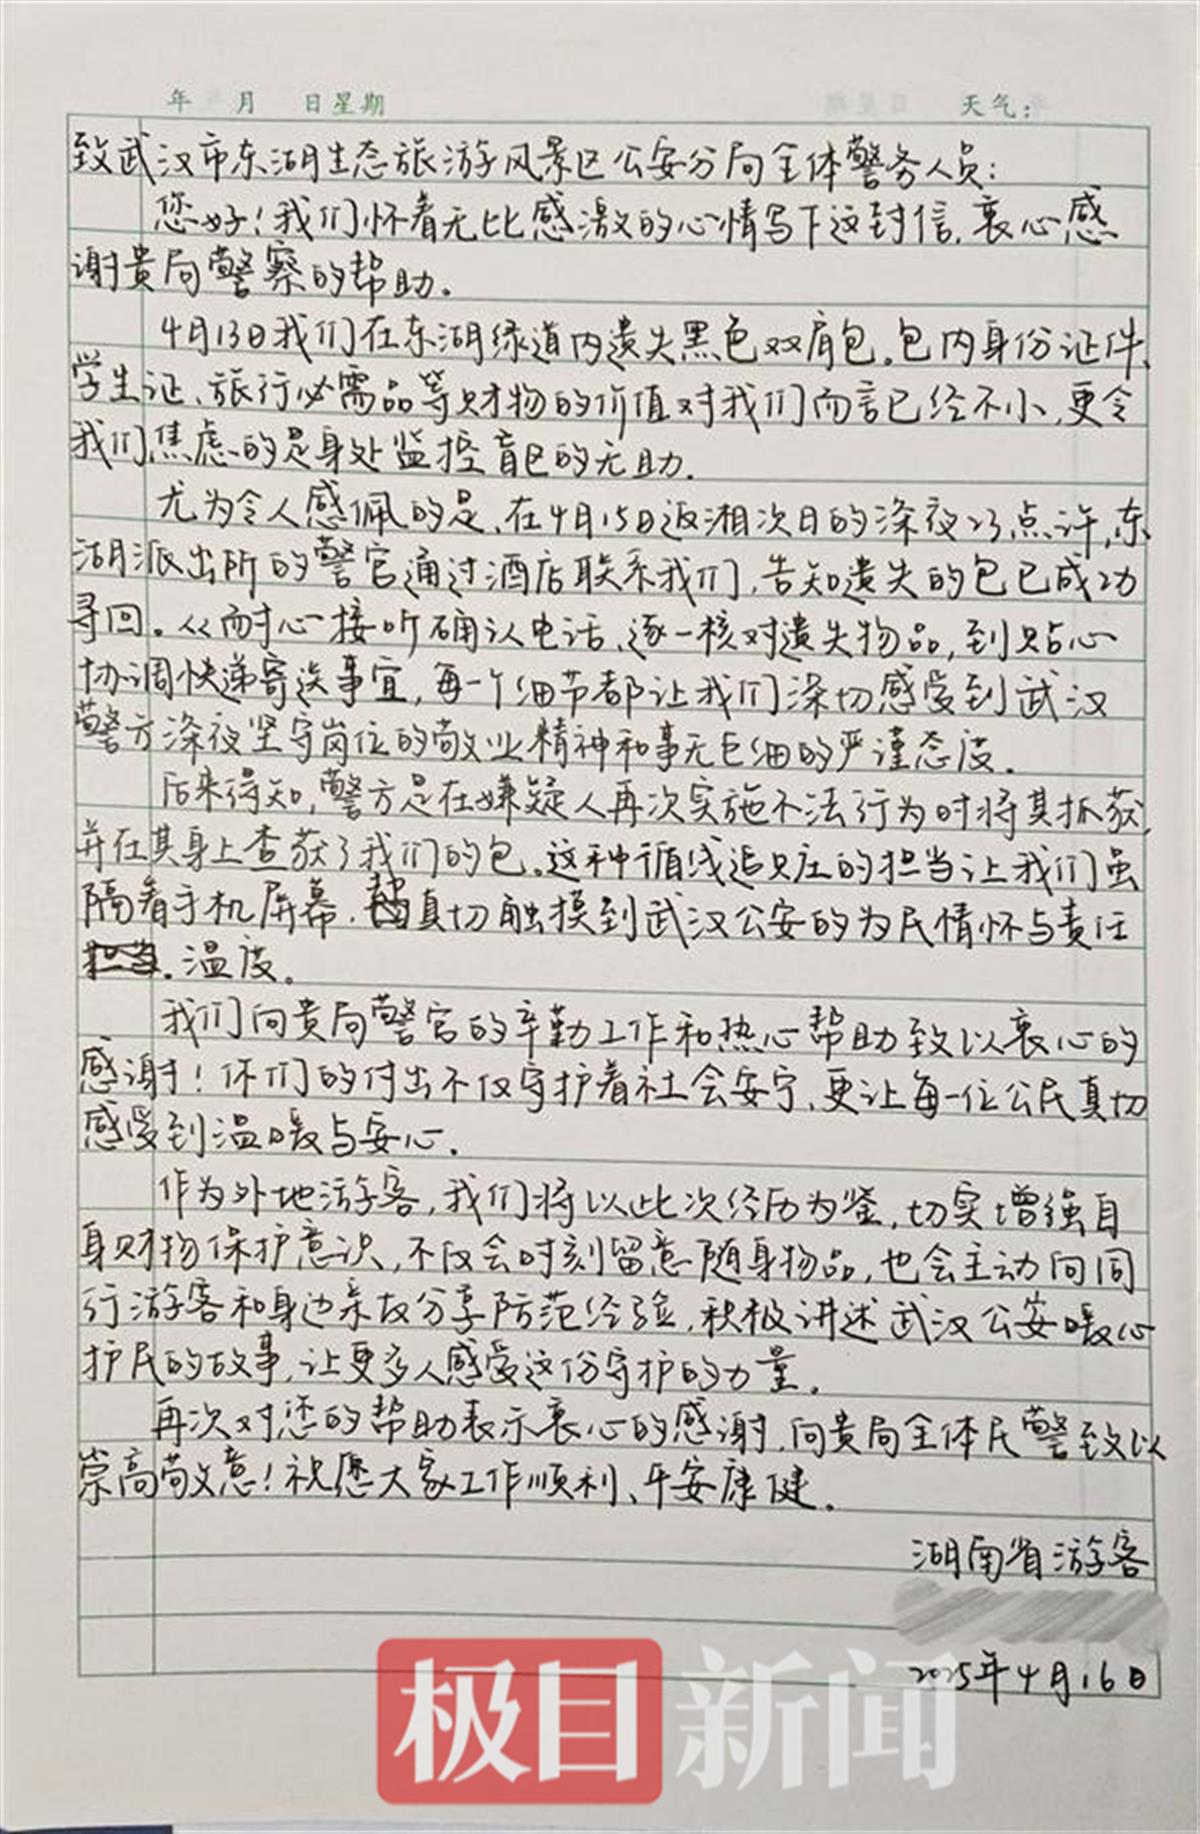 年 月 日 星期 天气:
致武汉市东湖生态旅游风景区公安分局全体警务人员:
您好!我们怀着无比感激的心情写下这封信,衷心感
谢贵局警察的帮助。
4月13日我们在东湖绿道内遗失黑色双肩包。包内身份证件、
学生证、旅行必需品等财物的价值对我们而言已经不小,更令
我们焦虑的是身处监控盲区的无助。
尤为令人感佩的是,在4月15日返湘次日的深夜23点许,东
湖派出所的警官通过酒店联系我们,告知遗失的包已成功
寻回。从耐心接听确认电话、逐一核对遗失物品,到贴心
协调快递寄送事宜,每一个细节都让我们深切感受到武汉
警方深夜坚守岗位的敬业精神和事无巨细的严谨态度。
后来得知,警方是在嫌疑人再次实施不法行为时将其抓获,
并在其身上查获了我们的包。这种循线追踪的担当让我们虽
隔着手机屏幕,真切触摸到武汉公安的为民情怀与责任
温度。
我们向贵局警官的辛勤工作和热心帮助致以衷心的
感谢!你们的付出不仅守护着社会安宁,更让每一位公民真切
感受到温暖与安心。
作为外地游客,我们将以此次经历为鉴,切实增强自
身财物保护意识,不仅会时刻留意随身物品,也会主动向同
行游客和身边亲友分享防范经验,积极讲述武汉公安暖心
护民的故事,让更多人感受这份守护的力量。
再次对您的帮助表示衷心的感谢,向贵局全体民警致以
崇高敬意!祝愿大家工作顺利、平安康健。
湖南省游客
2025年4月16日
极目新闻